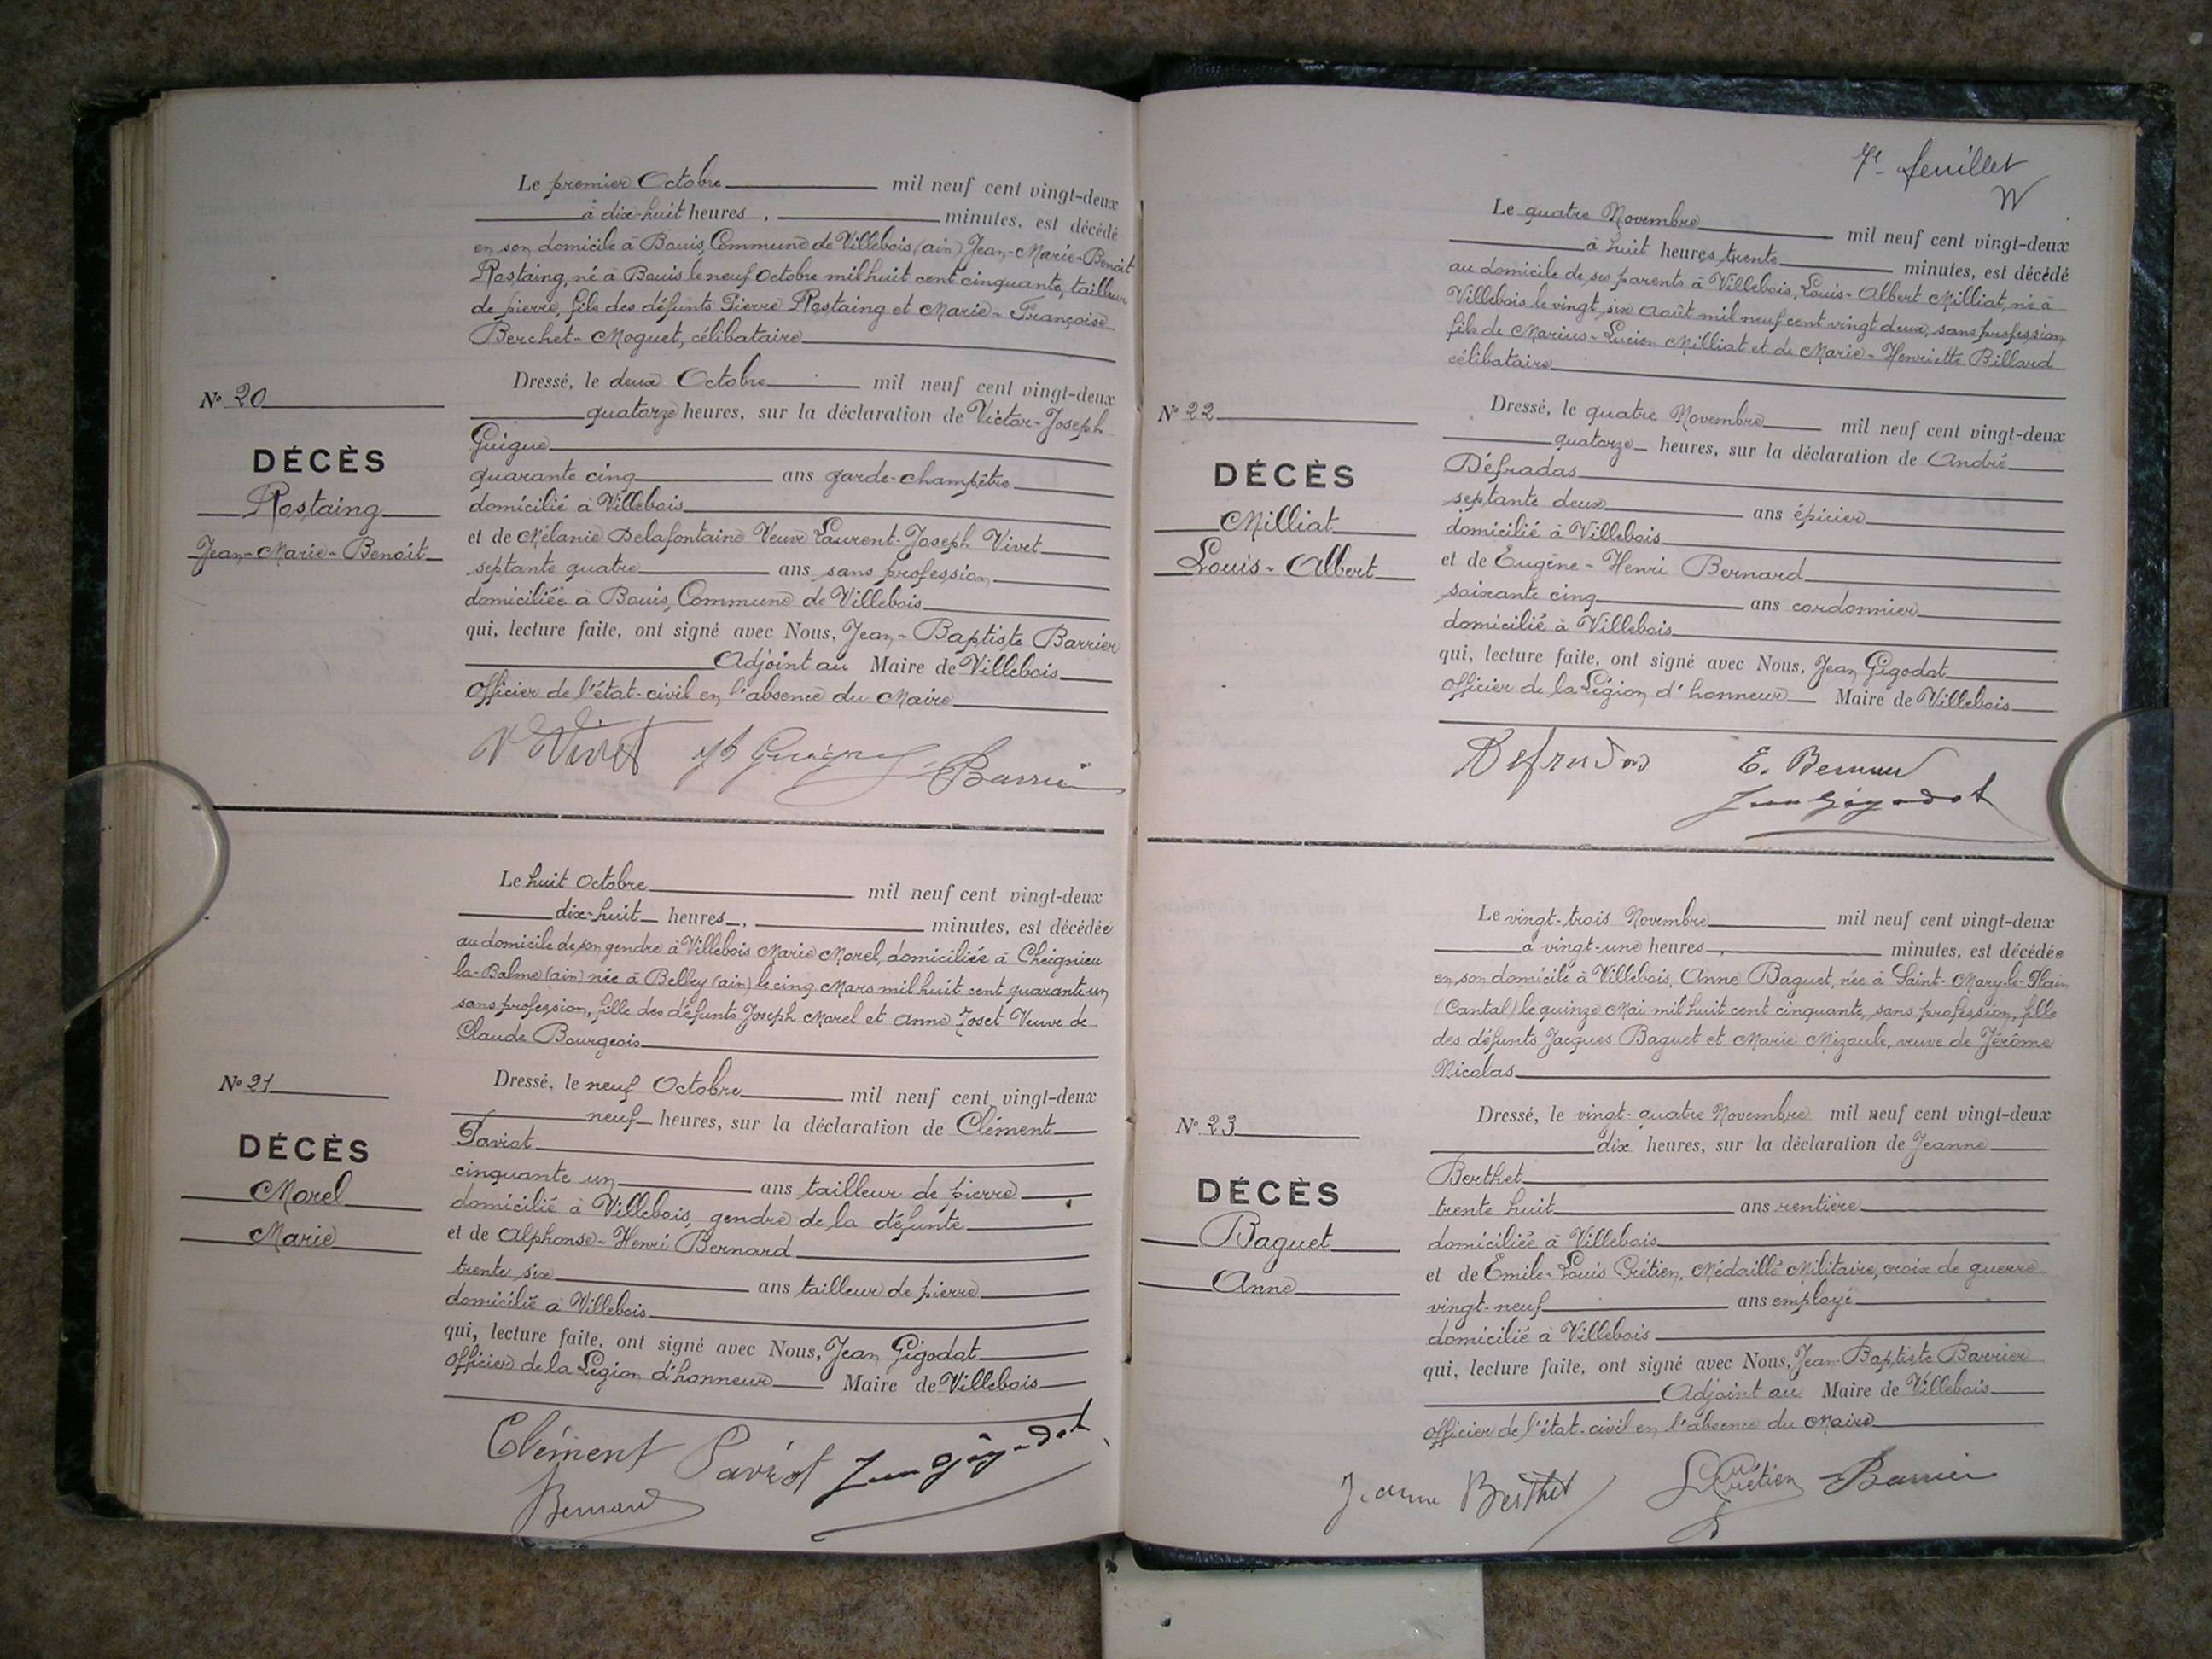 Le premier Octobre mil neuf cent vingt-deux
à dix-huit heures, minutes, est décédé
en son domicile à Bouis, Commune de Villebois (ain) Jean-Marie-Benoit
Rostaing, né à Bouis le neuf Octobre mil huit cent cinquante, tailleur
de pierre, fils des défunts Pierre Rostaing et Marie-Françoise
Berchet-Moguet, célibataire
Nº 20
DÉCÈS
Rostaing
Jean-Marie-Benoit
Dressé, le deux Octobre mil neuf cent vingt-deux
quatorze heures, sur la déclaration de Victor-Joseph
Guigue
quarante cinq ans garde-champêtre
domicilié à Villebois
et de Mélanie Delafontaine Veuve Laurent-Joseph Vivet
septante quatre ans sans profession
domiciliée à Bouis, Commune de Villebois
qui, lecture faite, ont signé avec Nous, Jean-Baptiste Barrier
Adjoint au Maire de Villebois
Officier de l'état-civil en l'absence du Maire
Vivet Barrier
Le huit Octobre mil neuf cent vingt-deux
dix-huit heures, minutes, est décédée
au domicile de son gendre à Villebois Marie Morel, domiciliée à Cheignieu
la-Balme (ain) née à Belley (ain) le cinq Mars mil huit cent quarante un
sans profession, fille des défunts Joseph Morel et Anne Joset Veuve de
Claude Bourgeois
Nº 21
DÉCÈS
Morel
Marie
Dressé, le neuf Octobre mil neuf cent vingt-deux
neuf heures, sur la déclaration de Clément
Paviot
cinquante un ans tailleur de pierre
domicilié à Villebois, gendre de la défunte
et de Alphonse-Henri Bernard
trente six ans tailleur de pierre
domicilié à Villebois
qui, lecture faite, ont signé avec Nous, Jean Gigodot
Officier de la Légion d'honneur Maire de Villebois
Clément Paviot Jean Gigodot
Bernard
7e feuillet
Le quatre Novembre mil neuf cent vingt-deux
à huit heures trente minutes, est décédé
au domicile de ses parents à Villebois, Louis-Albert Milliat, né à
Villebois le vingt six Août mil neuf cent vingt deux, sans profession
fils de Marius-Lucien Milliat et de Marie-Henriette Billard
célibataire
Nº 22
DÉCÈS
Milliat
Louis-Albert
Dressé, le quatre Novembre mil neuf cent vingt-deux
quatorze heures, sur la déclaration de André
Défradas
septante deux ans épicier
domicilié à Villebois
et de Eugène-Henri Bernard
soixante cinq ans cordonnier
domicilié à Villebois
qui, lecture faite, ont signé avec Nous, Jean Gigodot
Officier de la Légion d'honneur Maire de Villebois
Defradas E. Bernard
Jean Gigodot
Le vingt-trois Novembre mil neuf cent vingt-deux
à vingt-une heures, minutes, est décédée
en son domicile à Villebois, Anne Baguet, née à Saint-Mary-le-Plain
(Cantal) le quinze Mai mil huit cent cinquante, sans profession, fille
des défunts Jacques Baguet et Marie Mizoule, veuve de Jérôme
Nicolas
Nº 23
DÉCÈS
Baguet
Anne
Dressé, le vingt-quatre Novembre mil neuf cent vingt-deux
dix heures, sur la déclaration de Jeanne
Berthet
trente huit ans rentière
domiciliée à Villebois
et de Emile-Louis Crétien, Médaillé Militaire, croix de guerre
vingt-neuf ans employé
domicilié à Villebois
qui, lecture faite, ont signé avec Nous, Jean-Baptiste Barrier
Adjoint au Maire de Villebois
Officier de l'état-civil en l'absence du Maire
Jeanne Berthet Crétien Barrier